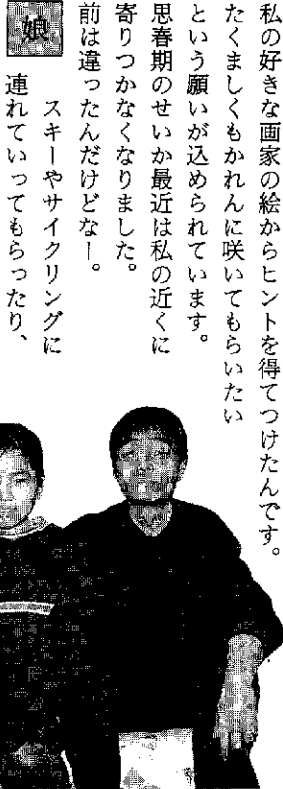 私の好きな画家の絵からヒントを得てつけたんです。
たくましくもかれんに咲いてもらいたい
という願いが込められています。
思春期のせいか最近は私の近くに
寄りつかなくなりました。
前は違ったんだけどなー。
娘
スキーやサイクリングに
連れていってもらったり、